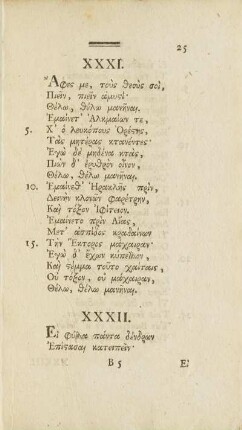 25
XXXI.
Ἄφες με, τοὺς θεούς σοι,
Πιεῖν, πιεῖν ἀμυστί·
Θέλω, θέλω μανῆναι.
Ἐμαίνετ' Ἀλκμαίων τε,
5. Χ' ὁ λευκόπους Ὀρέστης,
Τὰς μητέρας κτανόντες·
Ἐγὼ δὲ μηδένα κτὰς,
Πιὼν δ' ἐρυθρὸν οἶνον,
Θέλω, θέλω μανῆναι.
10. Ἐμαίνεθ' Ἡρακλῆς πρὶν,
Δεινὴν κλονῶν φαρέτρην,
Καὶ τόξον Ἰφίτειον.
Ἐμαίνετο πρὶν Αἴας,
Μετ' ἀσπίδος κραδαίνων
15. Τὴν Ἕκτορος μάχαιραν·
Ἐγὼ δ' ἔχων κύπελλον,
Καὶ στέμμα τοῦτο χαίταις,
Οὐ τόξον, οὐ μάχαιραν,
Θέλω, θέλω μανῆναι.
XXXII.
Εἰ φύλλα πάντα δένδρων
Ἐπίστασαι κατειπεῖν·
B 5 Εἰ